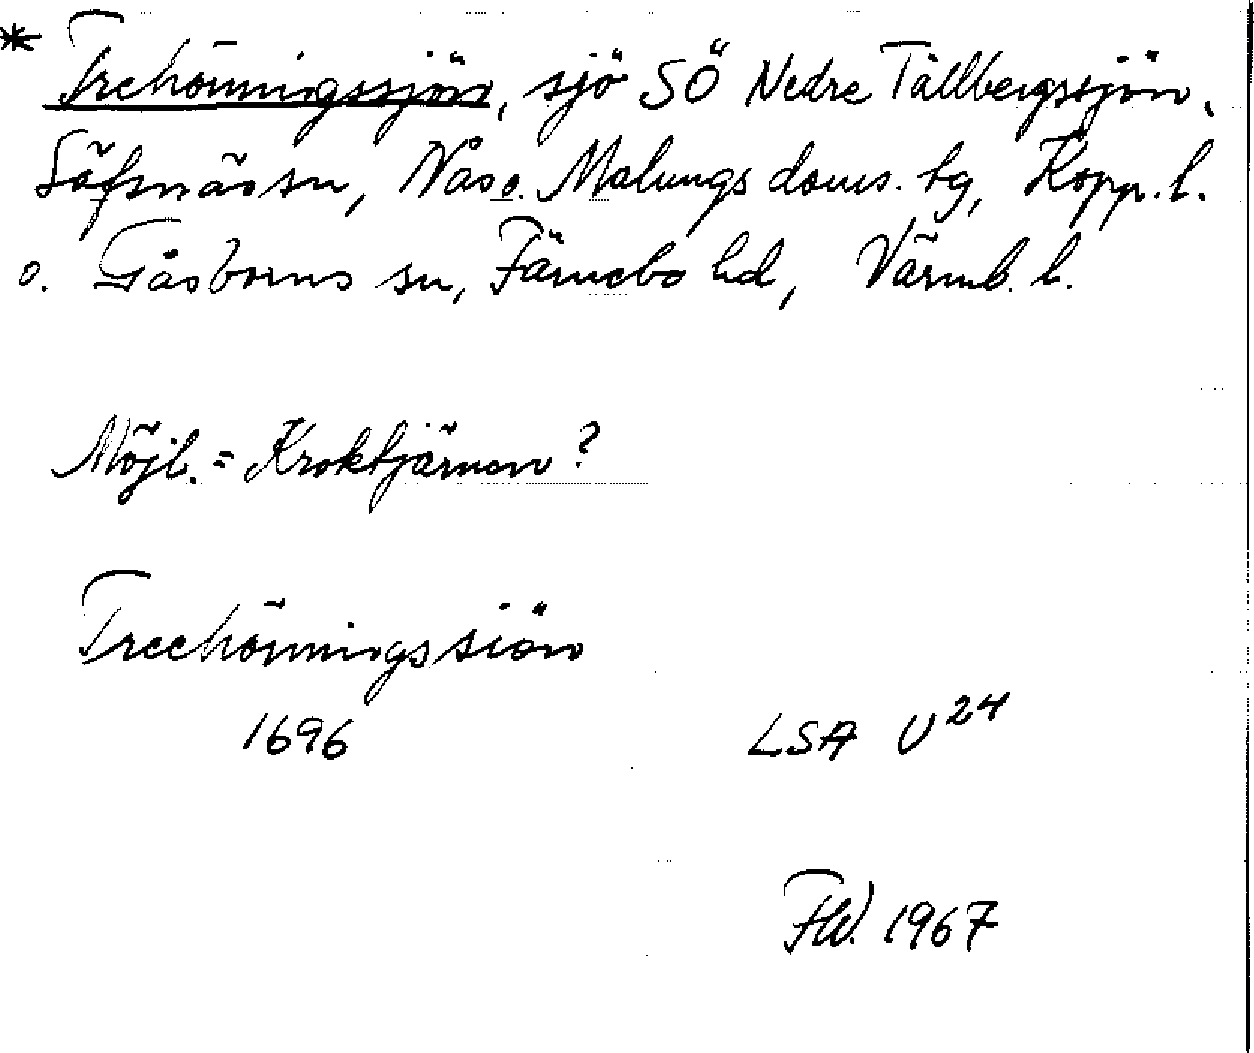 * Trehörningssjön, sjö SÖ Nedre Tällbergssjön,
Säfsnäs sn, Nås o. Malungs doms. tg, Kopp. l.
o. Gåsborns sn, Färnebo hd, Värml. l.
Möjl. = Kroktjärnen?
Treehörningssiön
1696
LSA U24
FW. 1967